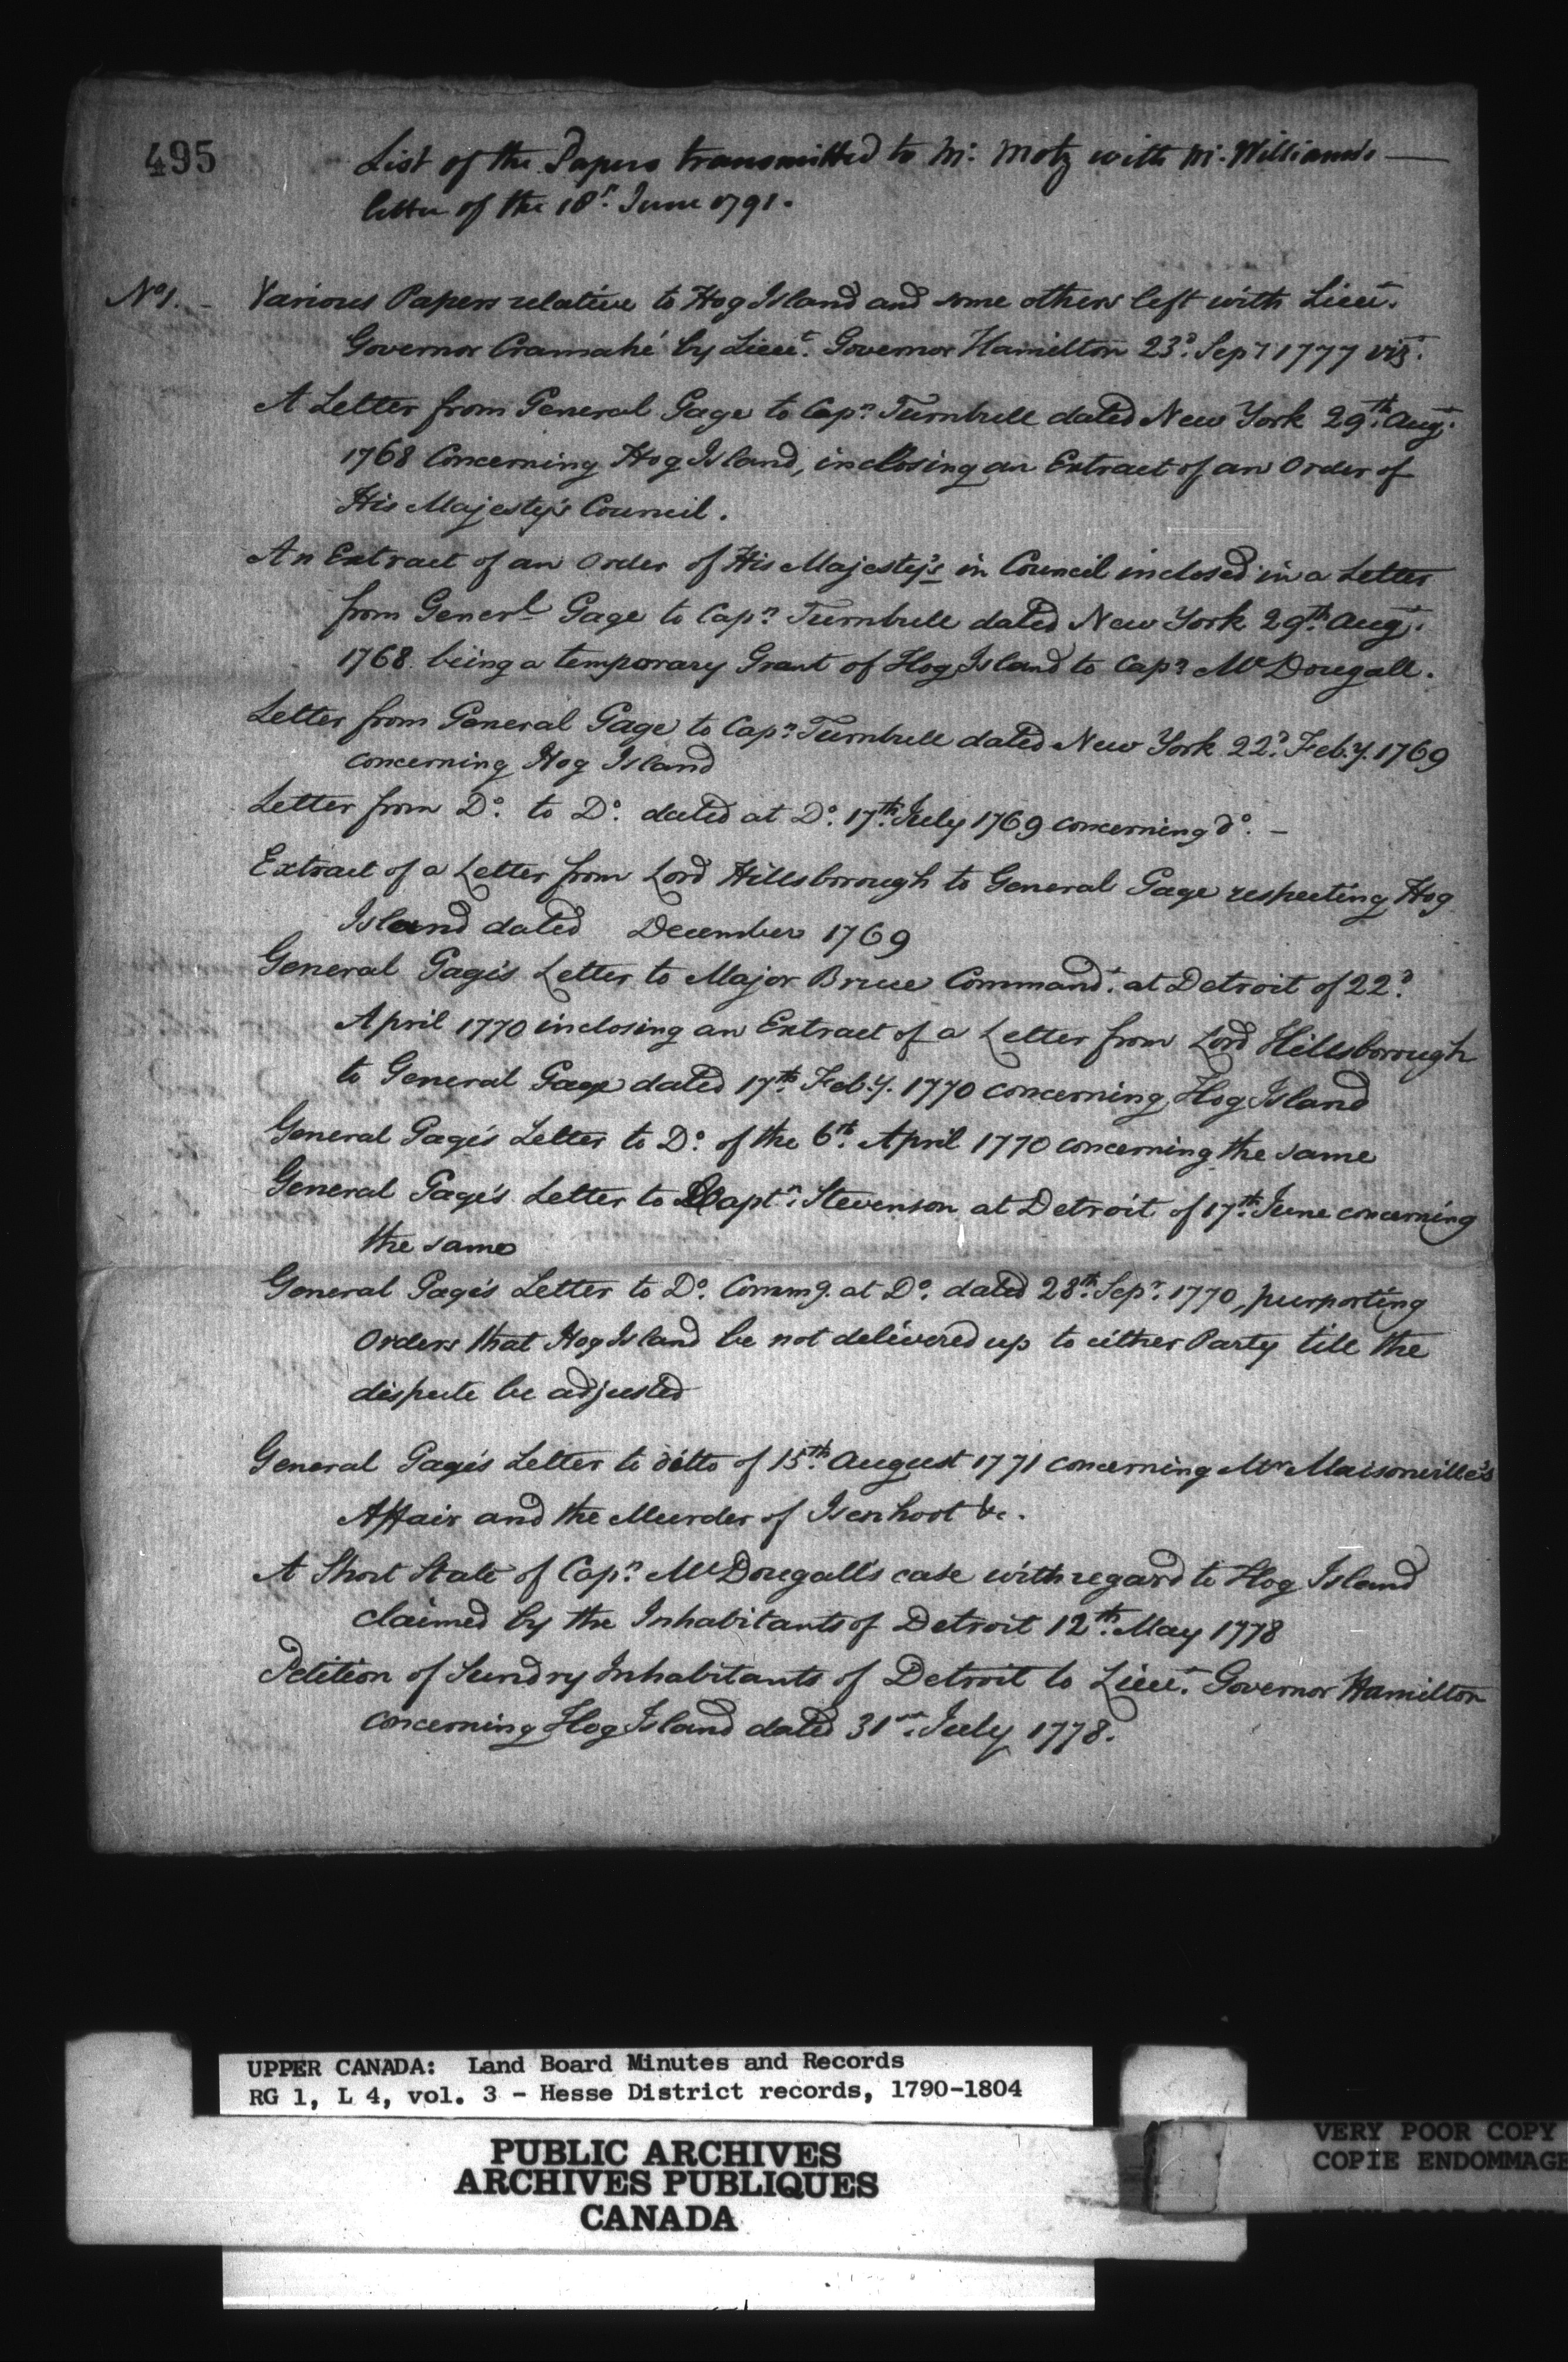 495
List of the Papers transmitted to Mr. Motz with Mr. Williams's —
letter of the 18th. June 1791.
No. 1. - Various Papers relative to Hog Island and some others left with Lieut.
Governor Cramahé by Lieut. Governor Hamilton 23d. Sepr 1777 viz.
A Letter from General Gage to Capn. Turnbull dated New York 29th. Augt.
1768 Concerning Hog Island, inclosing an Extract of an Order of
His Majesty's Council.
An Extract of an Order of His Majesty's in Council inclosed in a Letter
from Generl. Gage to Capn. Turnbull dated New York 29th. Augt.
1768. being a temporary Grant of Hog Island to Capn. McDougall.
Letter from General Gage to Capn. Turnbull dated New York 22d. Feb.y. 1769
concerning Hog Island
Letter from Do. to Do. dated at Do. 17th. July 1769 concerning do. -
Extract of a Letter from Lord Hillsborough to General Gage respecting Hog
Island dated December 1769
General Gage's Letter to Major Bruce Command.t at Detroit of 22d.
April 1770 inclosing an Extract of a Letter from Lord Hillsborough
to General Gage dated 17th. Feb.y. 1770 concerning Hog Island
General Gage's Letter to Do. of the 6th. April 1770 concerning the same
General Gage's Letter to Captn. Stevenson at Detroit of 17th. June concerning
the same
General Gage's Letter to Do. Commg. at Do. dated 28th. Sepr. 1770, purporting
Orders that Hog Island be not delivered up to either Party till the
dispute be adjusted
General Gage's Letter to ditto of 15th. August 1771 concerning Mr Maisonville's
Affair and the Murder of Isenhoot &c.
A Short State of Capn. McDougall's case with regard to Hog Island
claimed by the Inhabitants of Detroit 12th. May 1778
Petition of Sundry Inhabitants of Detroit to Lieut. Governor Hamilton
concerning Hog Island dated 31st. July 1778.
UPPER CANADA: Land Board Minutes and Records
RG 1, L 4, vol. 3 - Hesse District records, 1790-1804
PUBLIC ARCHIVES
ARCHIVES PUBLIQUES
CANADA
VERY POOR COPY
COPIE ENDOMMAGE